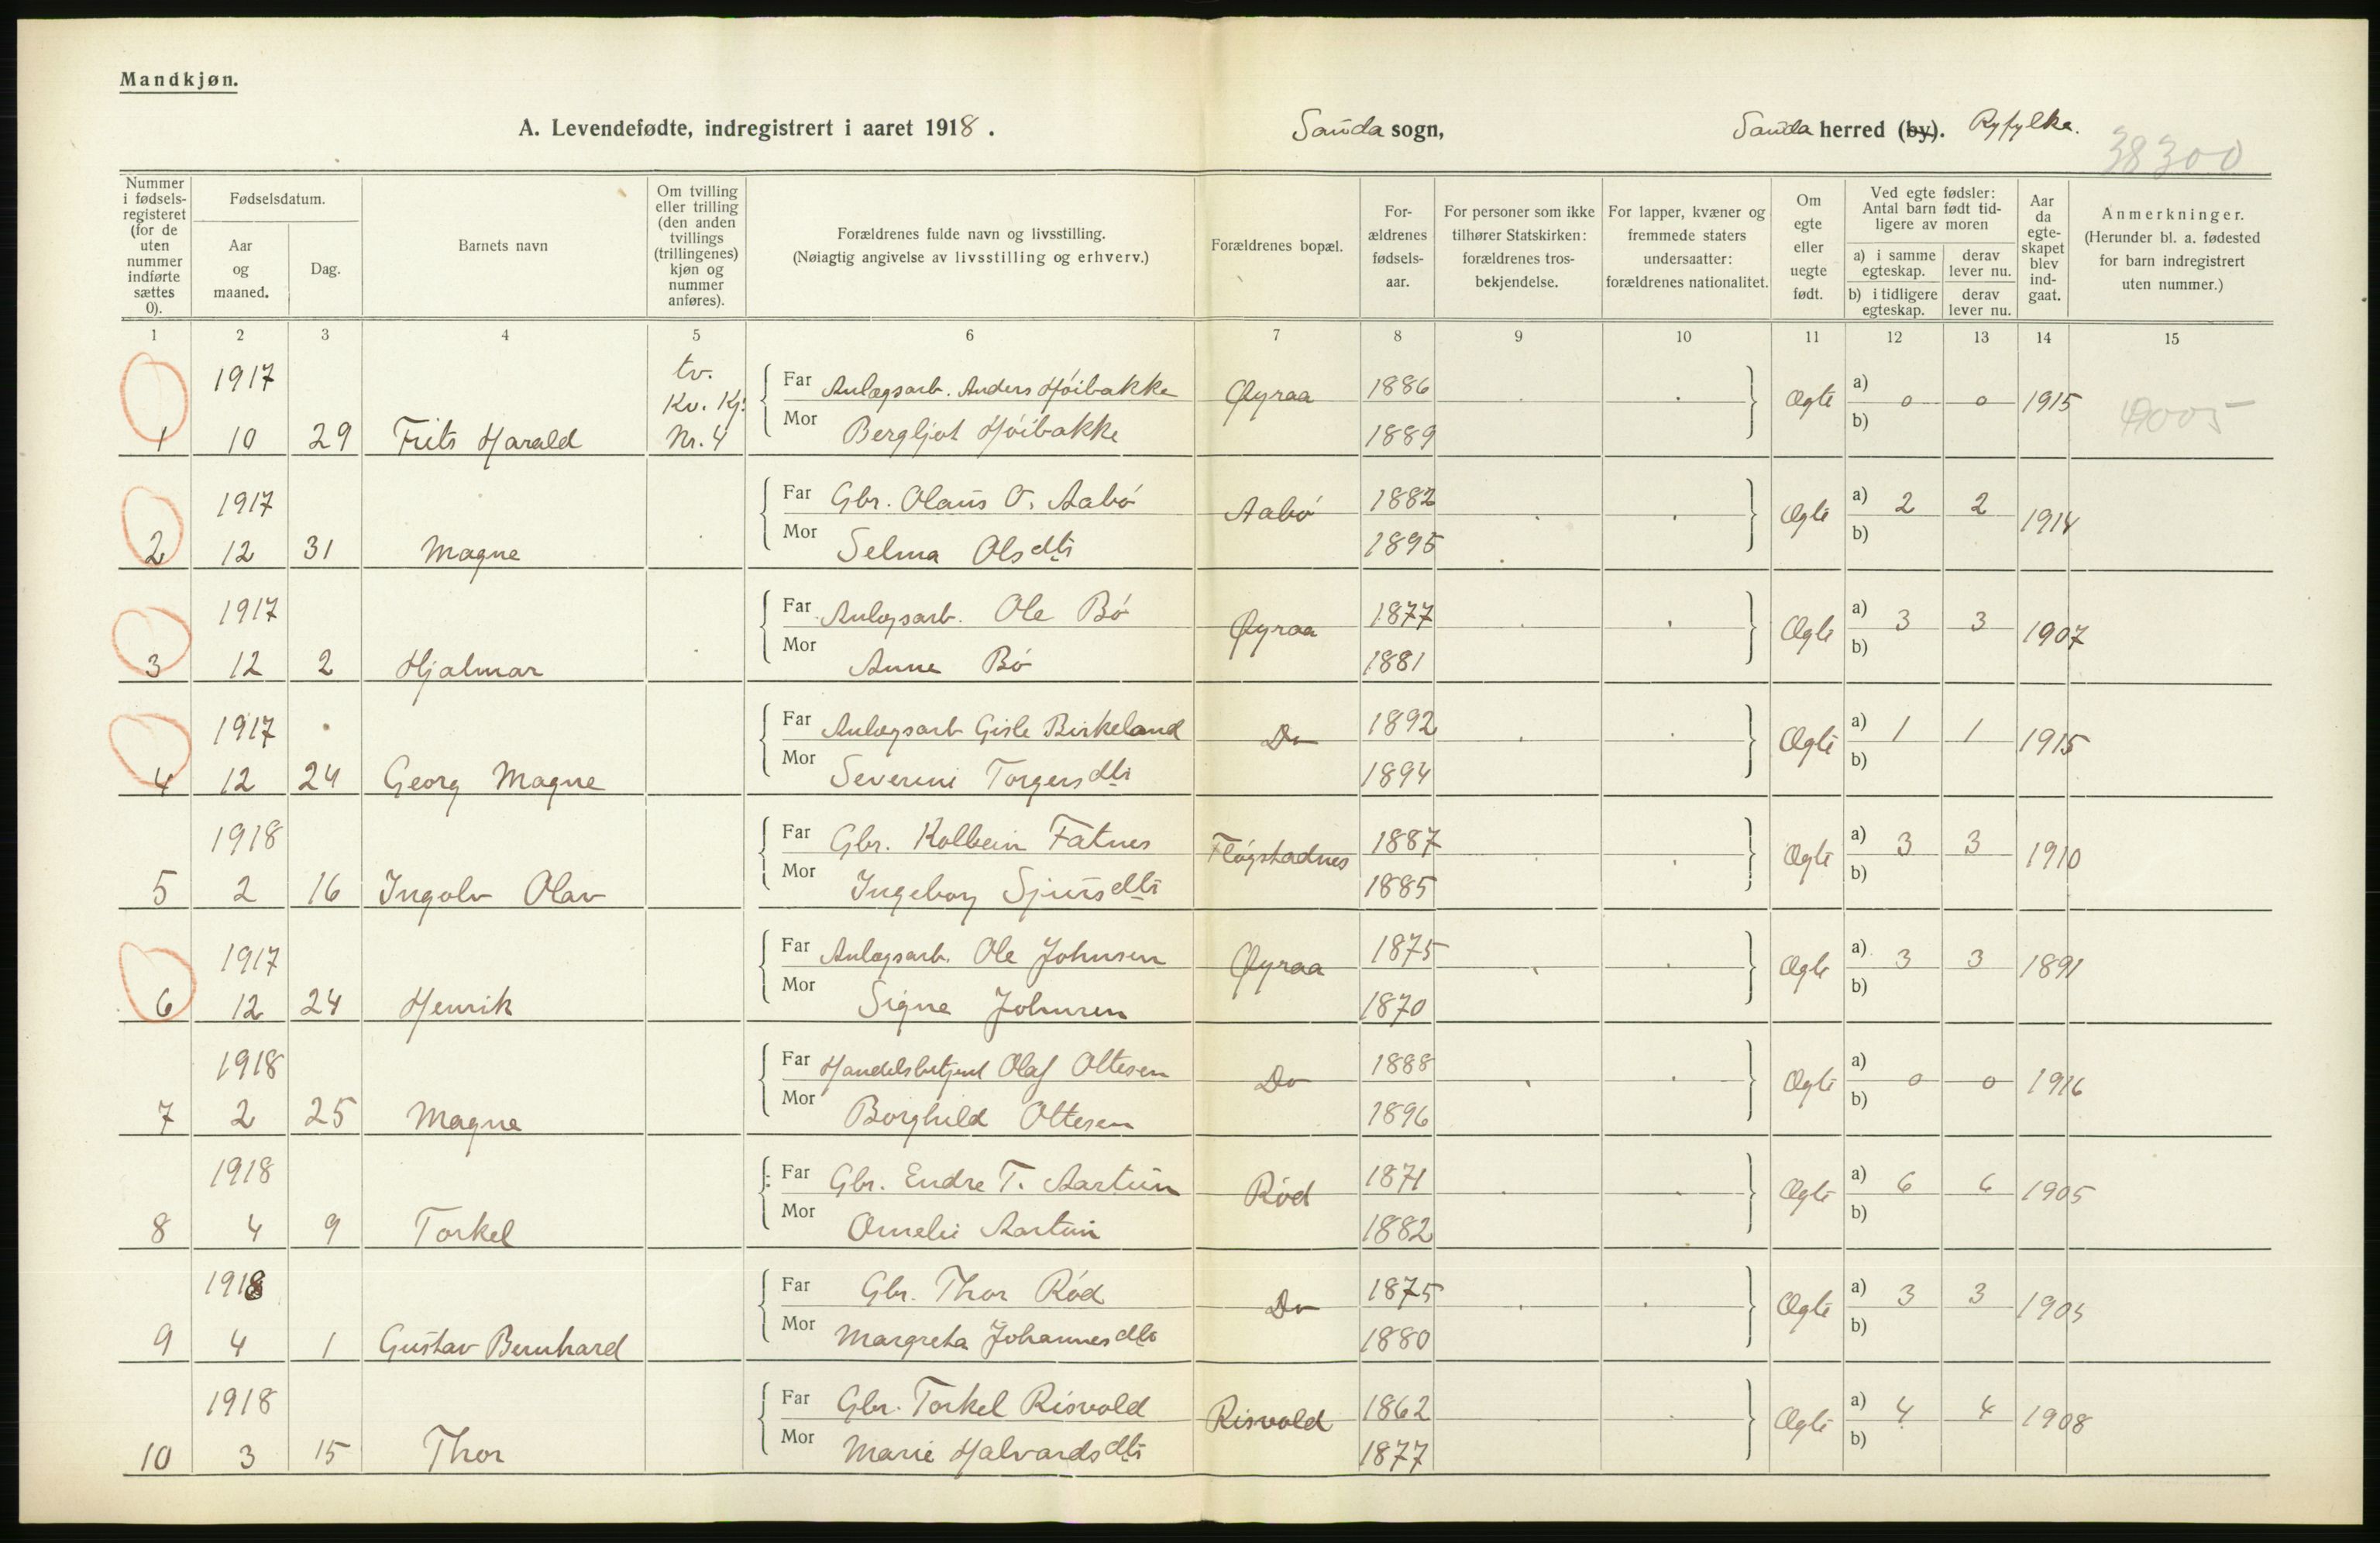 Mandkjøn.
A. Levendefødte, indregistrert i aaret 1918. Sauda sogn, Sauda herred (by). Ryfylke.
38300
Nummer i fødsels-registeret (for de uten nummer indførte sættes 0).
Fødselsdatum.
Aar og maaned.
Dag.
Barnets navn
Om tvilling eller trilling (den anden tvillings (trillingenes) kjøn og nummer anføres).
Forældrenes fulde navn og livsstilling.
(Nøiagtig angivelse av livsstilling og erhverv.)
Forældrenes bopæl.
For-ældrenes fødsels-aar.
For personer som ikke tilhører Statskirken: forældrenes tros-bekjendelse.
For lapper, kvæner og fremmede staters undersaatter: forældrenes nationalitet.
Om egte eller uegte født.
Ved egte fødsler: Antal barn født tid-ligere av moren
a) i samme egteskap.
derav lever nu.
b) i tidligere egteskap.
derav lever nu.
Aar da egte-skapet blev ind-gaat.
Anmerkninger.
(Herunder bl. a. fødested for barn indregistrert uten nummer.)
1 2 3 4 5 6 7 8 9 10 11 12 13 14 15
1917 tv. Kv. Kj. Far Anlægsarb. Anders Høibakke Øyraa 1886 Ægte a) 0 0 1915
1 10 29 Frits Harald Nr. 4 Mor Bergljot Høibakke 1889 b)
1917 Far Gbr. Olaus O. Aabø Aabø 1882 Ægte a) 2 2 1914
2 12 31 Magne Mor Selma Olsdtr 1895 b)
1917 Far Anlægsarb. Ole Bø Øyraa 1877 Ægte a) 3 3 1907
3 12 2 Hjalmar Mor Anne Bø 1881 b)
1917 Far Anlægsarb Gisle Birkeland Do 1892 Ægte a) 1 1 1915
4 12 24 Georg Magne Mor Severine Torgersdtr 1894 b)
1918 Far Gbr. Kolbein Fatnes Fløgstadnes 1887 Ægte a) 3 3 1910
5 2 16 Ingolv Olav Mor Ingeborg Sjursdtr 1885 b)
1917 Far Anlægsarb. Ole Johnsen Øyraa 1875 Ægte a) 3 3 1891
6 12 24 Henrik Mor Signe Johnsen 1870 b)
1918 Far Handelsbetjent Olaf Oltesen Do 1888 Ægte a) 0 0 1916
7 2 25 Magne Mor Borghild Oltesen 1896 b)
1918 Far Gbr. Endre T. Aartun Rød 1871 Ægte a) 6 6 1905
8 4 9 Torkel Mor Omelie Aartun 1882 b)
1918 Far Gbr. Thor Rød Do 1875 Ægte a) 3 3 1905
9 4 1 Gustav Bernhard Mor Margreta Johannesdtr 1880 b)
1918 Far Gbr. Torkel Risvold Risvold 1862 Ægte a) 4 4 1908
10 3 15 Thor Mor Marie Halvardsdtr 1877 b)